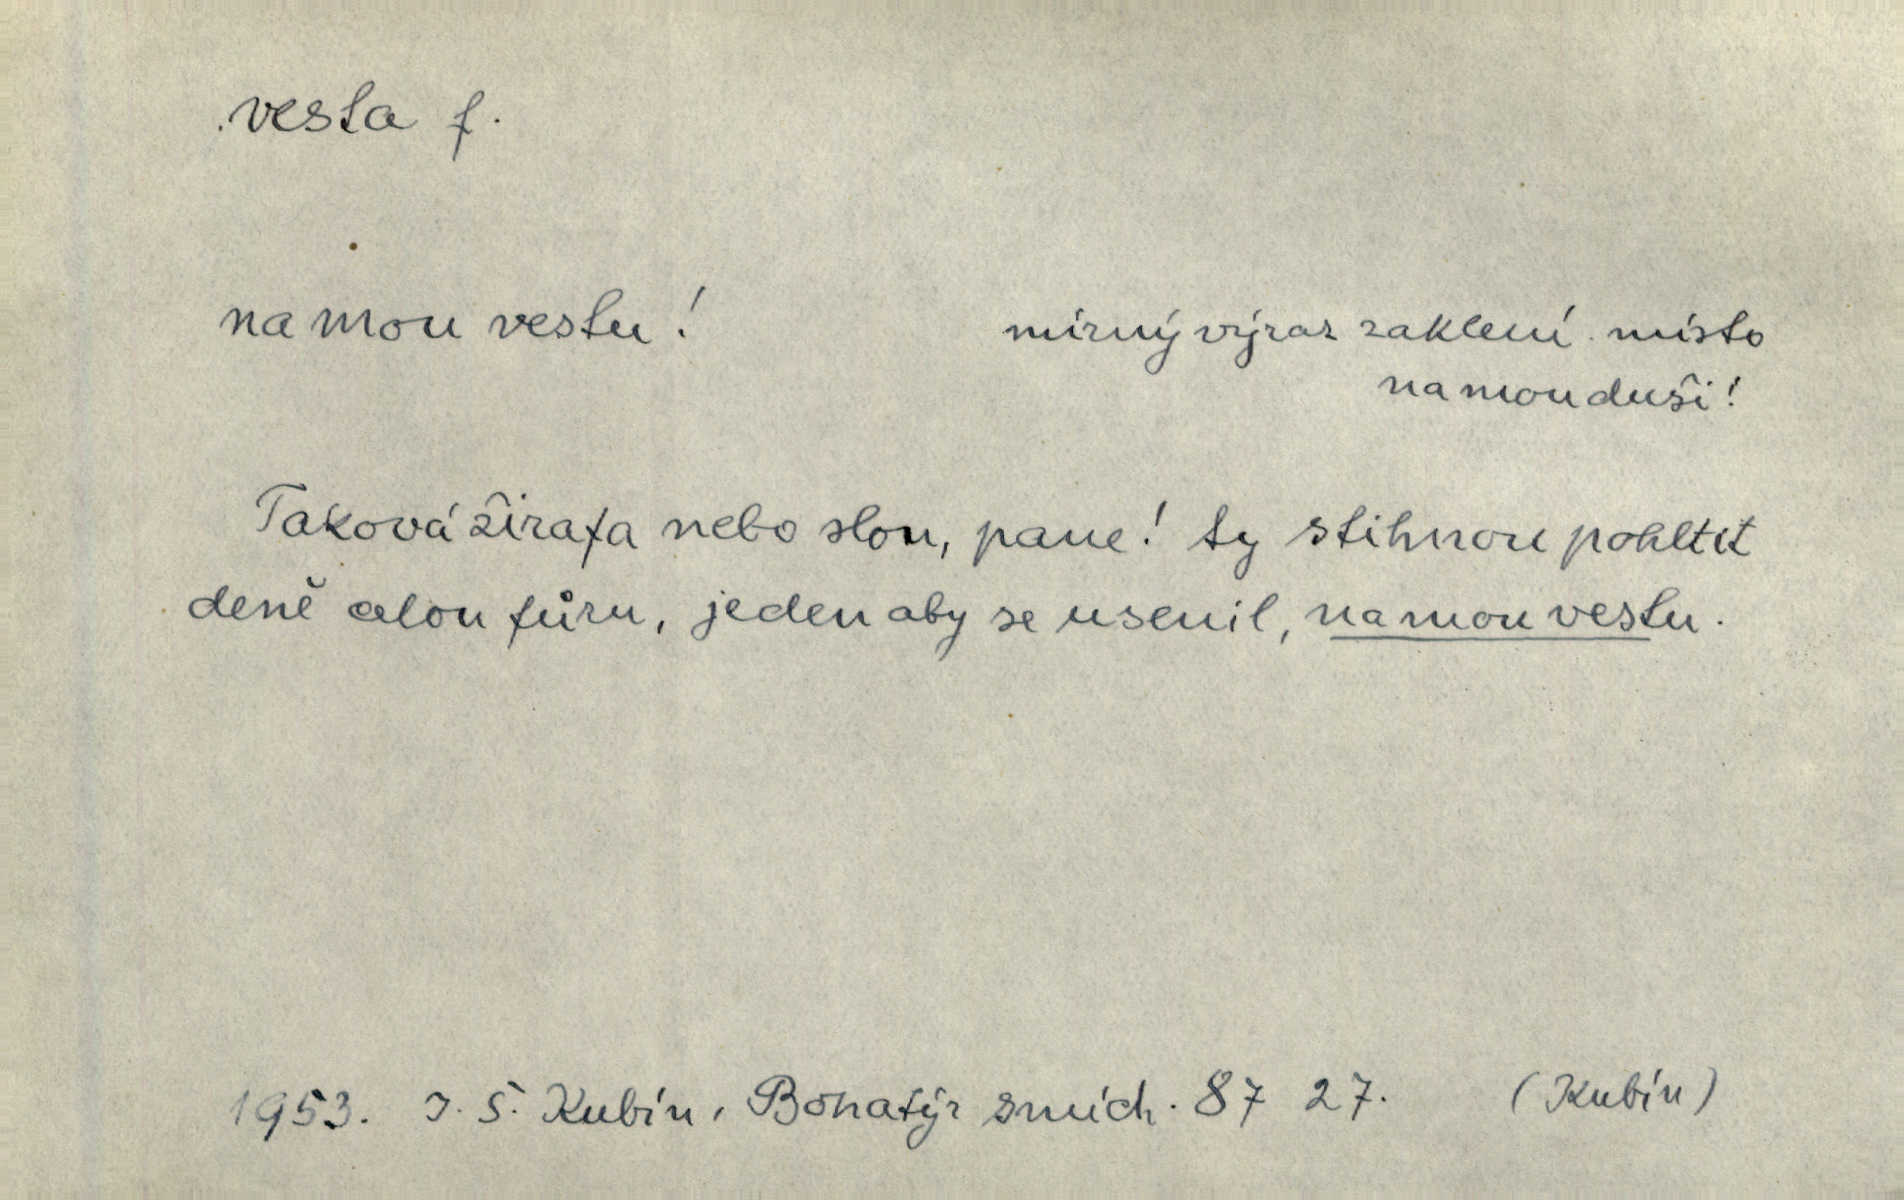 vesta f.
na mou vestu!
mírný výraz zaklení místo
na mou duši!
Taková žirafa nebo slon, pane! ty stihnou pohltit
deně celou fůru, jeden aby se usenil, na mou vestu.
1953. J. Š. Kubín, Bohatýr smích. 87 27. (Kubín)